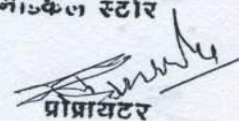 मेडिकल स्टोर
प्रोप्रायटर